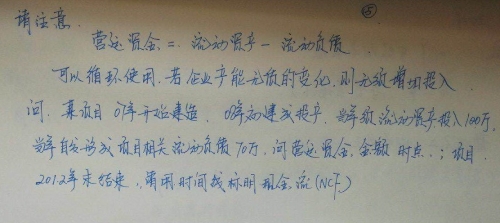 请注意. ⑤
营运资金 = 流动资产 - 流动负债
可以循环使用.若企业产能无质的变化,则无须增加投入
问.某项目07年开始建造.08年初建成投产.当年须流动资产投入100万,
当年自发形成项目相关流动负债70万.问营运资金.金额 时点.;项目
2012年末结束,请用时间线标明现金流(NCF.)